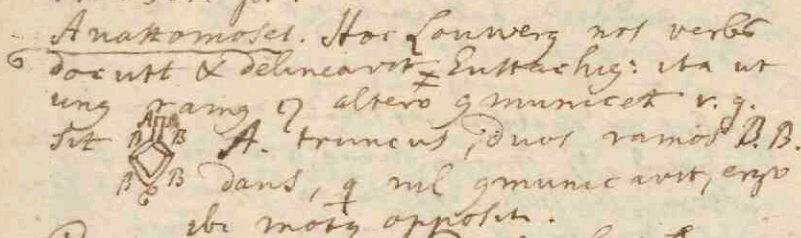 Anastomoses. Hoc Louwerg nos verbis
docuit & delineavit Eustachig: ita ut
ung ramg c altero gmunicet v. g.
sit A. truncus, duos ramos B. B.
A B B B B
dans, q nil gmunicavit, ergo
ibi motg oppositi.